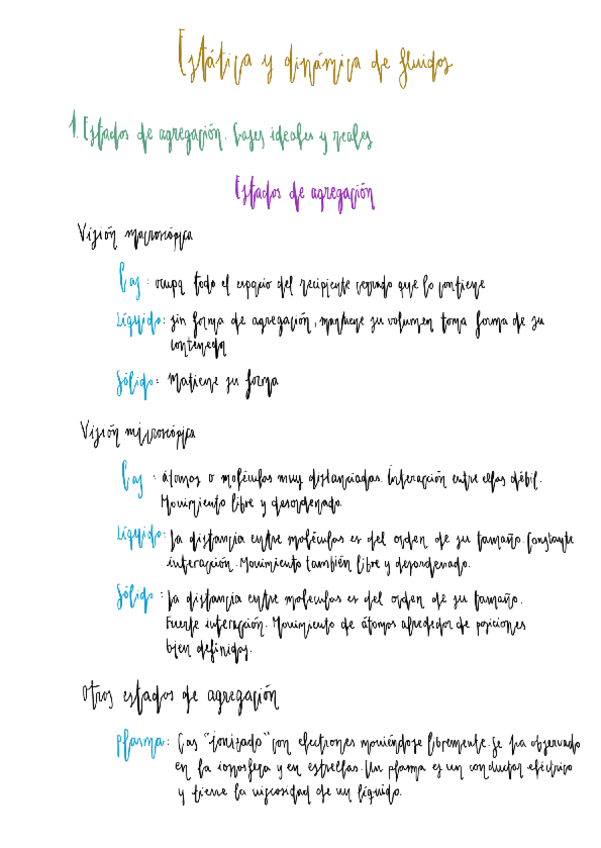 Estática y dinámica de fluidos
1. Estados de agregación. Gases ideales y reales
Estados de agregación
Visión macroscópica
Gas: ocupa todo el espacio del recipiente cerrado que lo contiene
Líquido: sin forma de agregación, mantiene su volumen toma forma de su
contenedor
Sólido: Matiene su forma
Visión microscópica
Gas: átomos o moléculas muy distanciadas. Interacción entre ellas débil.
Movimiento libre y desordenado.
Líquido: La distancia entre moléculas es del orden de su tamaño. Constante
interacción. Movimiento también libre y desordenado.
Sólido: La distancia entre moléculas es del orden de su tamaño.
Fuerte interacción. Movimiento de átomos alrededor de posiciones
bien definidas.
Otros estados de agregación
Plasma: Gas "ionizado" con electrones moviéndose libremente. Se ha observado
en la ionosfera y en estrellas. Un plasma es un conductor eléctrico
y tiene la viscosidad de un líquido.